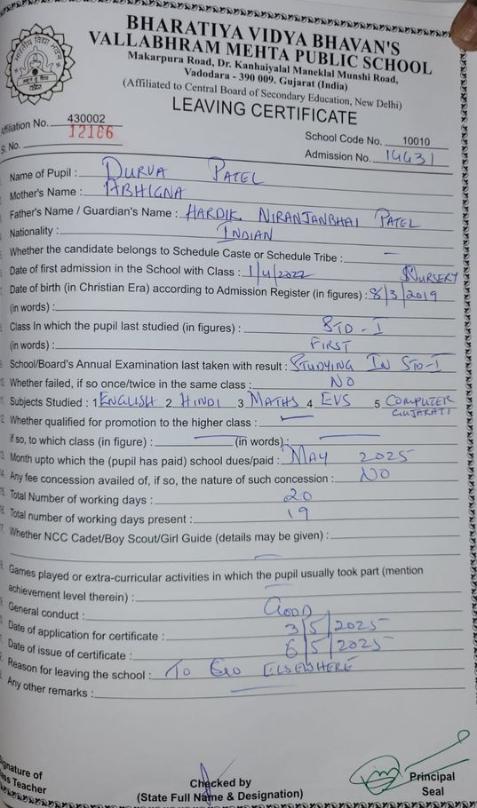 BHARATIYA VIDYA BHAVAN'S
VALLABHRAM MEHTA PUBLIC SCHOOL
Makarpura Road, Dr. Kanhaiyalal Maneklal Munshi Road,
Vadodara - 390 009. Gujarat (India)
(Affiliated to Central Board of Secondary Education, New Delhi)
LEAVING CERTIFICATE
Affiliation No. 430002
S. No. 12166
School Code No. 10010
Admission No. 14431
Name of Pupil : DURVA PATEL
Mother's Name : ABHIGNA
Father's Name / Guardian's Name : HARDIK NIRANJANBHAI PATEL
Nationality : INDIAN
Whether the candidate belongs to Schedule Caste or Schedule Tribe : —
Date of first admission in the School with Class : 1/4/2022 NURSERY
Date of birth (in Christian Era) according to Admission Register (in figures) : 8/3/2019
(in words) :
Class In which the pupil last studied (in figures) : STD - I
(in words) : FIRST
School/Board's Annual Examination last taken with result : STUDYING IN STD-I
Whether failed, if so once/twice in the same class : NO
Subjects Studied : 1 ENGLISH 2 HINDI 3 MATHS 4 EVS 5 COMPUTER
GUJARATI
Whether qualified for promotion to the higher class : —
if so, to which class (in figure) : — (in words) : —
Month upto which the (pupil has paid) school dues/paid : MAY 2025
Any fee concession availed of, if so, the nature of such concession : NO
Total Number of working days : 20
Total number of working days present : 19
Whether NCC Cadet/Boy Scout/Girl Guide (details may be given) :
—
Games played or extra-curricular activities in which the pupil usually took part (mention
achievement level therein) : —
General conduct : GOOD
Date of application for certificate : 3/5/2025
Date of issue of certificate : 6/5/2025
Reason for leaving the school : TO GO ELSEWHERE
Any other remarks : —
Signature of
Class Teacher
Checked by
(State Full Name & Designation)
Principal
Seal